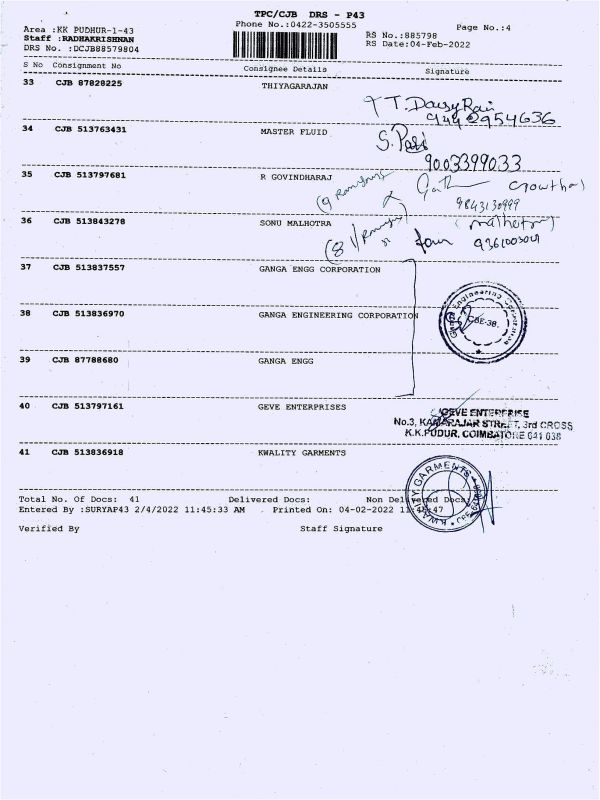 TPC/CJB DRS - P43
Area :KK PUDHUR-1-43
Phone No.:0422-3505555
Page No.:4
Staff :RADHAKRISHNAN
RS No.:885798
DRS No. :DCJB88579804
RS Date:04-Feb-2022
S No Consignment No Consignee Details Signature
33 CJB 87828225 THIYAGARAJAN
T. Daisy Rani
9442954636
34 CJB 513763431 MASTER FLUID
9003399033
35 CJB 513797681 R GOVINDHARAJ
9843130999
36 CJB 513843278 SONU MALHOTRA
(malhotra)
37 CJB 513837557 GANGA ENGG CORPORATION
38 CJB 513836970 GANGA ENGINEERING CORPORATION
CBE-38.
39 CJB 87788680 GANGA ENGG
40 CJB 513797161 GEVE ENTERPRISES
GEVE ENTERPRISE
No.3, KAMARAJAR STREET, 3rd CROSS
K.K.PUDUR, COIMBATORE 641 038
41 CJB 513836918 KWALITY GARMENTS
KWALITY GARMENTS
Total No. Of Docs: 41 Delivered Docs: Non Delivered Docs:
Entered By :SURYAP43 2/4/2022 11:45:33 AM . Printed On: 04-02-2022 11:45:47
Verified By Staff Signature